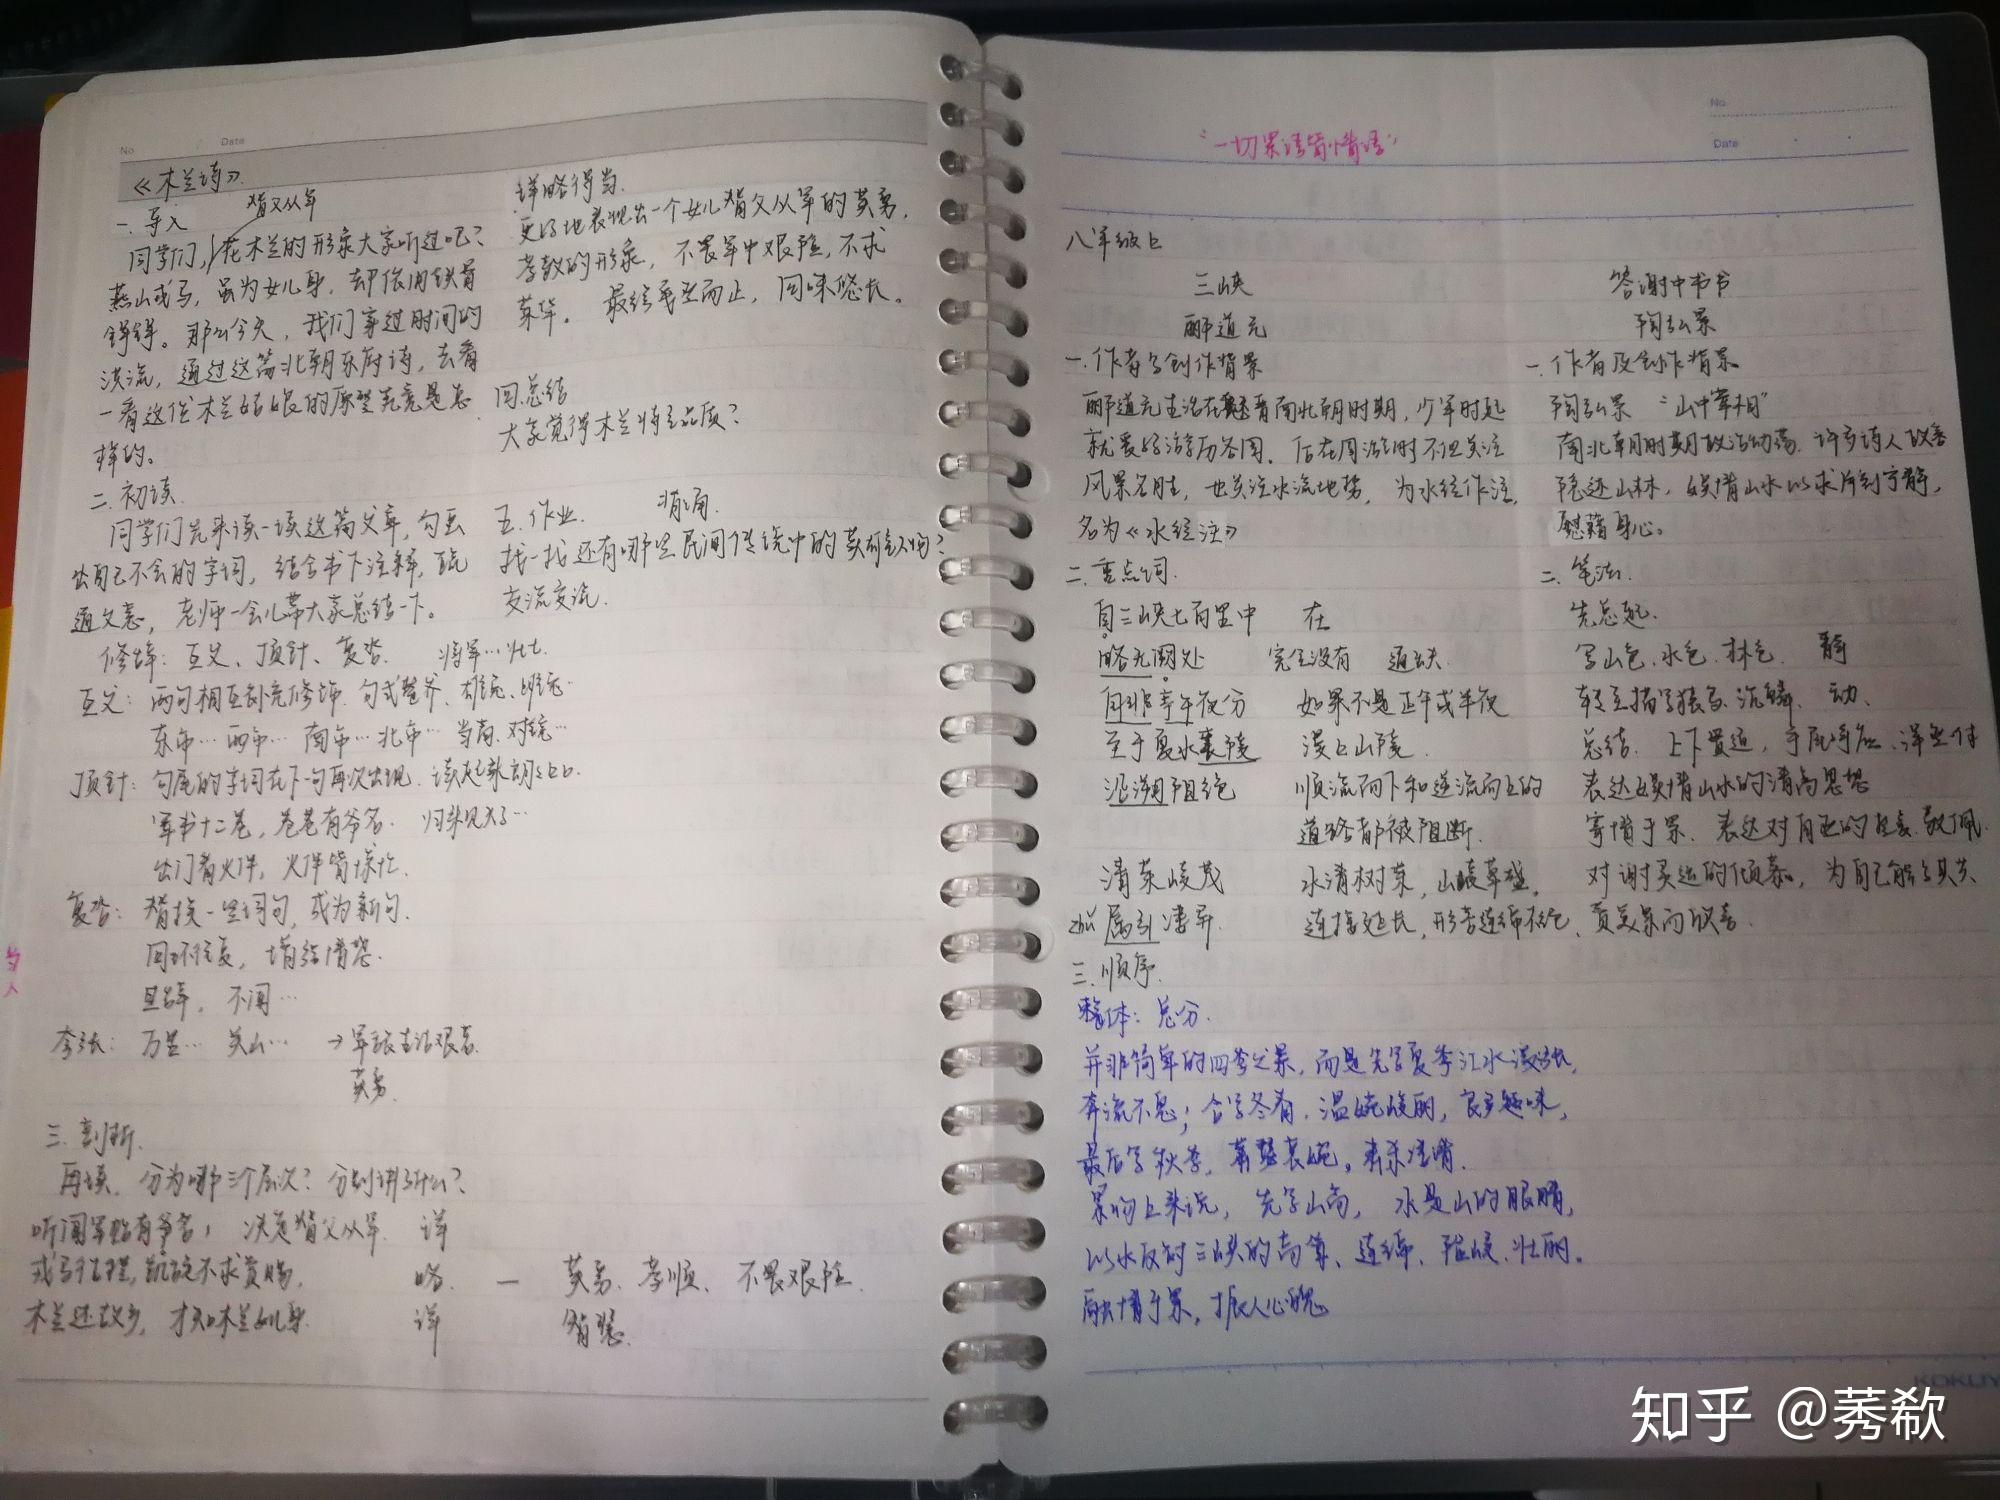 No
Date
《木兰诗》
一.导入
替父从军
同学们,花木兰的形象大家听过吧?
燕山戎马,虽为女儿身,却依旧铁骨
铮铮。那么今天,我们穿过时间的
洪流,通过这篇北朝乐府诗,去看
一看这位木兰姑娘的愿望究竟是怎
样的。
二.初读
同学们先来读一读这篇文章,勾画
出自己不会的字词,结合书下注释,疏
通文意,老师一会儿带大家总结一下。
修辞:互文、顶针、复沓. 将军…壮士
互文:两句相互补充修饰.句式整齐、
东市…西市…南市…北市…当窗.对镜…
顶针:句尾的字词在下一句再次出现.读起来朗朗上口.
军书十二卷,卷卷有爷名. 归来见天子…
出门看火伴,火伴皆惊忙.
复沓:替换一些词句,成为新句.
回环往复,增强情感.
旦辞,不闻…
夸张:万里…关山…→军旅生活艰苦.
英勇.
三.剖析.
再读.分为哪三个层次?分别讲了什么?
听闻军帖有爷名,决定替父从军. 详
戎马, 凯旋不求赏赐. 略. — 英勇、孝顺、不畏艰险.
木兰还故乡,才知木兰女儿身. 详
详略得当.
更好地表现出一个女儿替父从军的英勇,
孝敬的形象,不畏军中艰险,不求
荣华。 最终戛然而止,回味悠长。
四.总结
大家觉得木兰特点品质?
五.作业. 背诵.
找一找还有哪些民间传统中的英雄
交流交流.
"一切景语皆情语"
No
Date
八年级上
三峡
郦道元
一.作者与创作背景
郦道元生活在南北朝时期,少年时起
就爱好游历各国、后在周游时不但关注
风景名胜,也关注水流地势,为水经作注,
名为《水经注》
二.重点词.
自三峡七百里中 在
略无阙处 完全没有 通缺.
自非亭午夜分 如果不是正午或半夜
至于夏水襄陵 漫上山陵.
沿溯阻绝 顺流而下和逆流而上的
道路都被阻断.
清荣峻茂 水清树荣,山峻草盛.
属引凄异. 连接延长,形容连绵不绝、
三.顺序.
整体:总分.
并非简单的四季之景,而是先写夏季江水漫涨,
奔流不息;合写冬春,温婉峻丽,良多趣味,
最后写秋季,萧瑟哀婉,肃杀凄清.
景物上来说,先写山高,水是山的眼睛,
以水反衬三峡的高耸、连绵、险峻、壮丽。
融情于景,振人心魄
答谢中书书
陶弘景
一.作者及创作背景
陶弘景 "山中宰相"
南北朝时期政治动荡.许多诗人故喜
隐逐山林,娱情山水以求得到宁静,
慰藉身心。
二.笔法.
先总起.
写山色.水色.林色. 静
转至描写猿鸟、沉鳞. 动.
总结.
表达娱情山水的清高思想
寄情于景.表达对自然的喜爱.敬佩.
对谢灵运的倾慕,为自己能与其共
赏美景而欣喜.
知乎 @莠欷